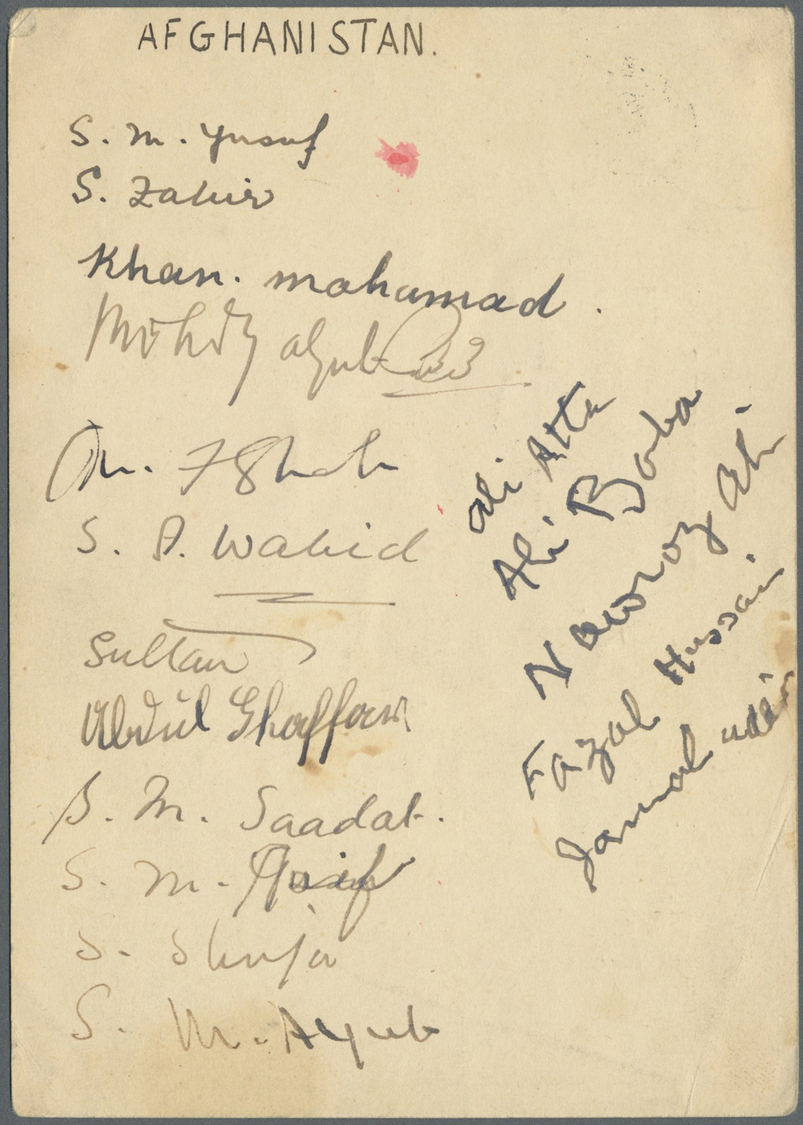 AFGHANISTAN.
S. M. Yusuf
S. Zahir
Khan. mohamad.
Mohd ayub
M. Shah
S. A. Wahid
Sultan
Abdul Ghaffar
S. M. Saadat.
S. M. Asif
S. Shuja
S. M. Ayub
Ali Atta
Ali Baba
Nawroz Ali
Fazal Hussain
Jamal uddin